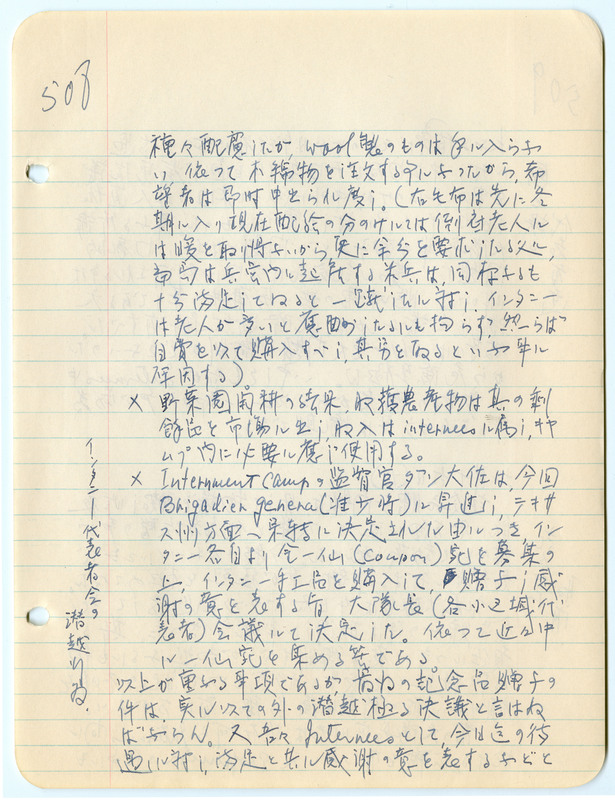 508
種々配慮したが、wool製のものは手に入らな
い、依つて木綿物を注文する事になつたから、希
望者は即時申出られ度し。(右毛布は先に冬
期に入り現在配給の分のみにては
は暖を取り得ないから、更に余分を要求したる処、
当局は兵営内に起居する米兵は、同様なるも
十分満足して居ると一蹴したに対し、インタニー
は老人が多いと應酬したるにも拘らず、然らば
自費を以て購入すべし、其労を取るといふ事に
る)。
× 野菜園開耕の結果、収穫農産物は其の剰
余を市場に出し、収入はinterneesに属し、キャ
ムプ内に必要に應じ使用する。
× Internment Campの監督官ダン大佐は、今回
Brigadier genera(准少将)に昇進し、テキサ
ス州方面へ栄転に決定された由につき、イン
タニー各自より金一仙(coupon)宛を募集の
上、インタニー手工品を購入して、贈予し感
謝の意を表する旨、大隊長(各小区域代
表者)会議にて決定した。依つて近日中
に一仙宛を集める筈である。
以上が重なる事項であるが、最后の記念品贈予の
件は、実に以ての外の潜越極る決議と言はね
ばならん。又吾々Interneesとして、今日迄の待
遇に対し、満足と共に感謝の意を表するなどと
インタニー代表者会の
潜越行為.